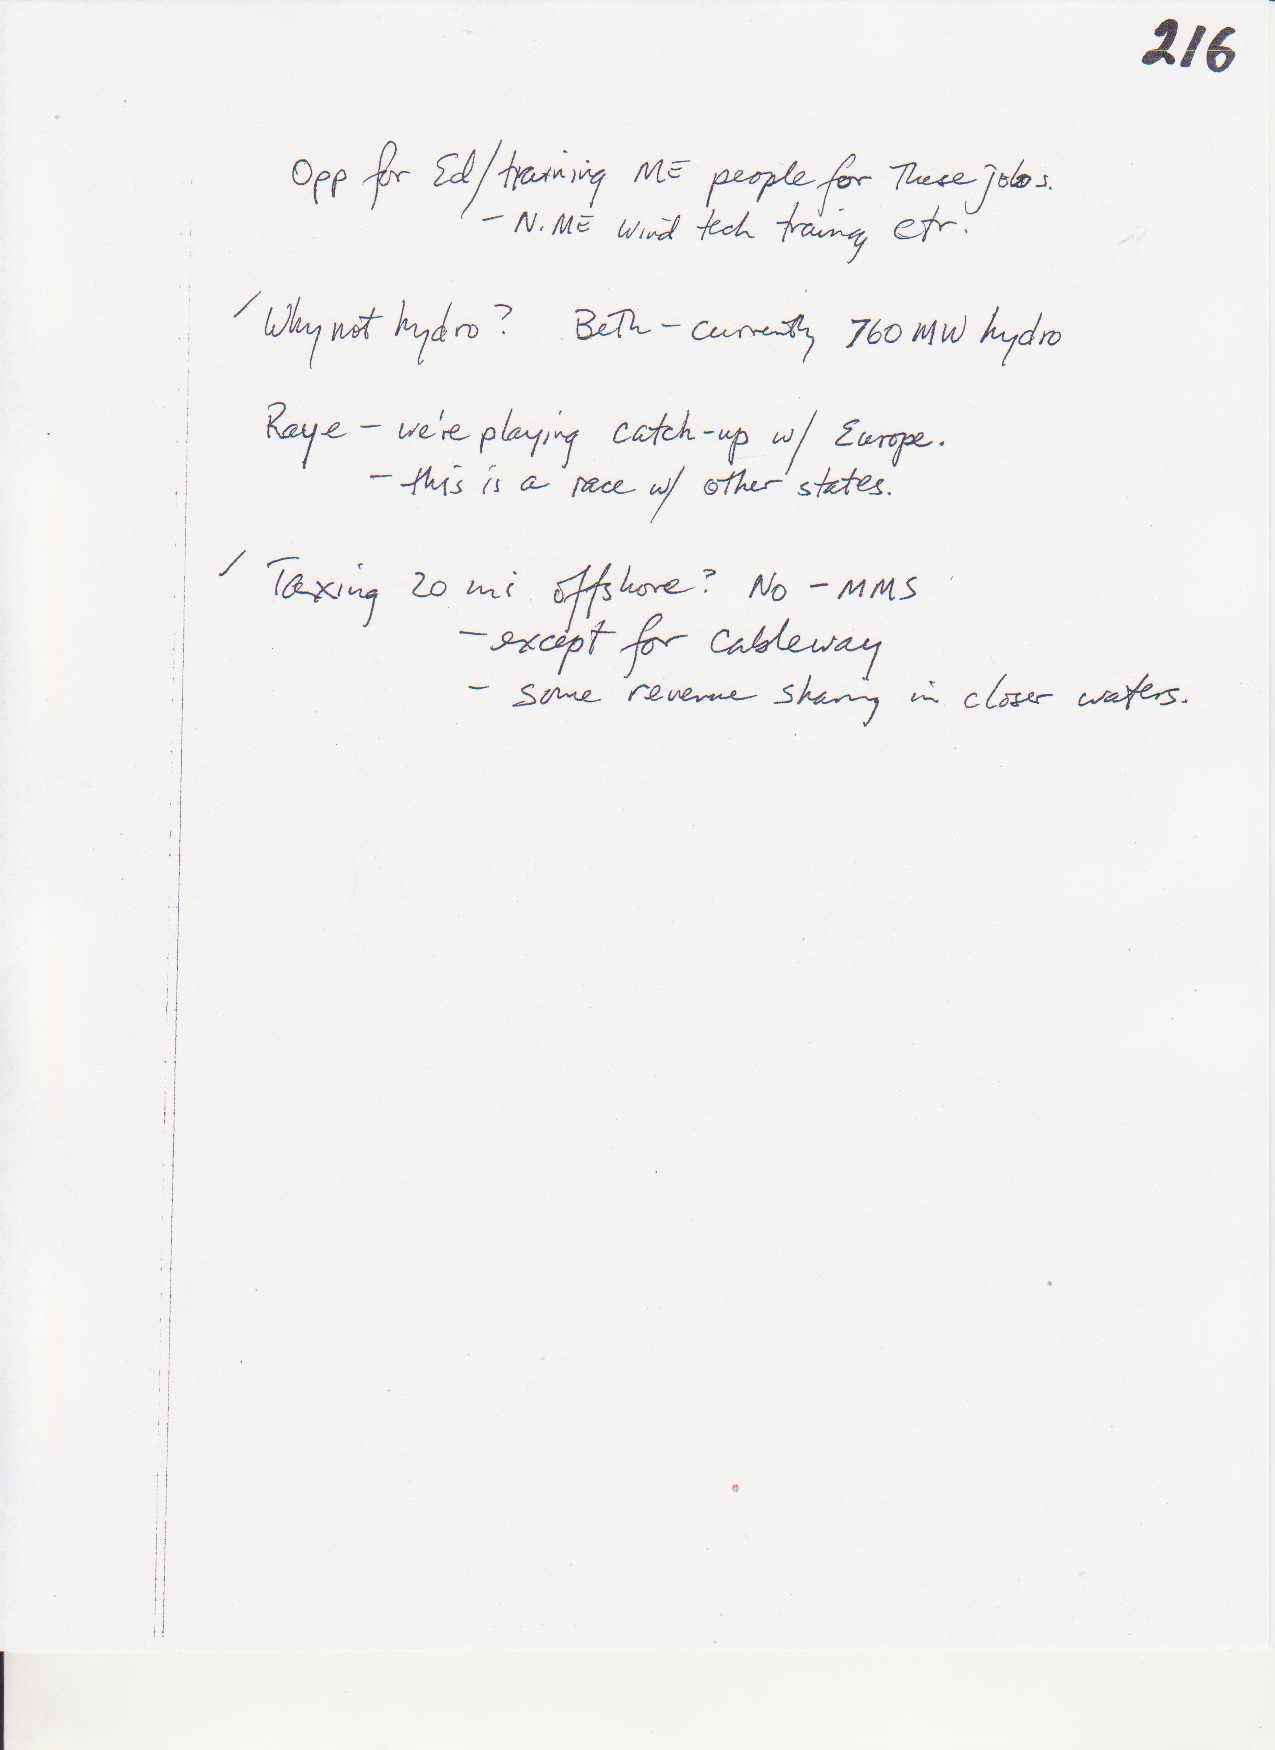 216
Opp for Ed/training ME people for These jobs.
- N. ME wind tech training etc.
✓ Why not hydro? Beth - currently 760 MW hydro
Raye - we're playing catch-up w/ Europe.
- this is a race w/ other states.
✓ Taxing 20 mi offshore? No - MMS
- except for cableway
- some revenue sharing in closer waters.